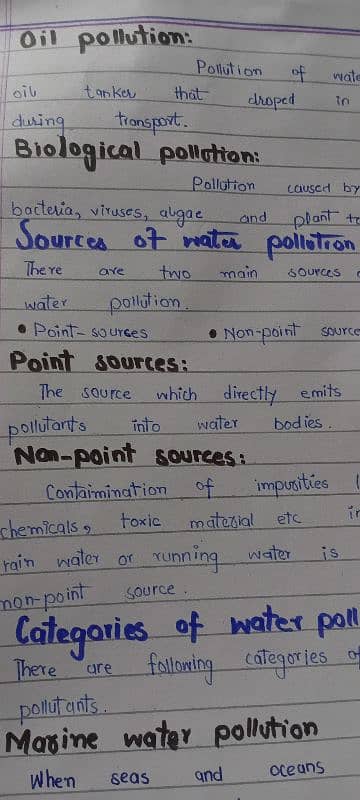 Oil pollution:
Pollution of wate
oil tanker that droped in
during transport.
Biological pollution:
Pollution caused by
bacteria, viruses, algae and plant to
Sources of water pollution
There are two main sources o
water pollution.
• Point-sourses • Non-point source
Point sources:
The source which directly emits
pollutants into water bodies.
Non-point sources:
Contaimination of impurities (
chemicals, toxic material etc in
rain water or running water is
non-point source.
Categories of water poll
There are following categories of
pollutants.
Marine water pollution
When seas and oceans